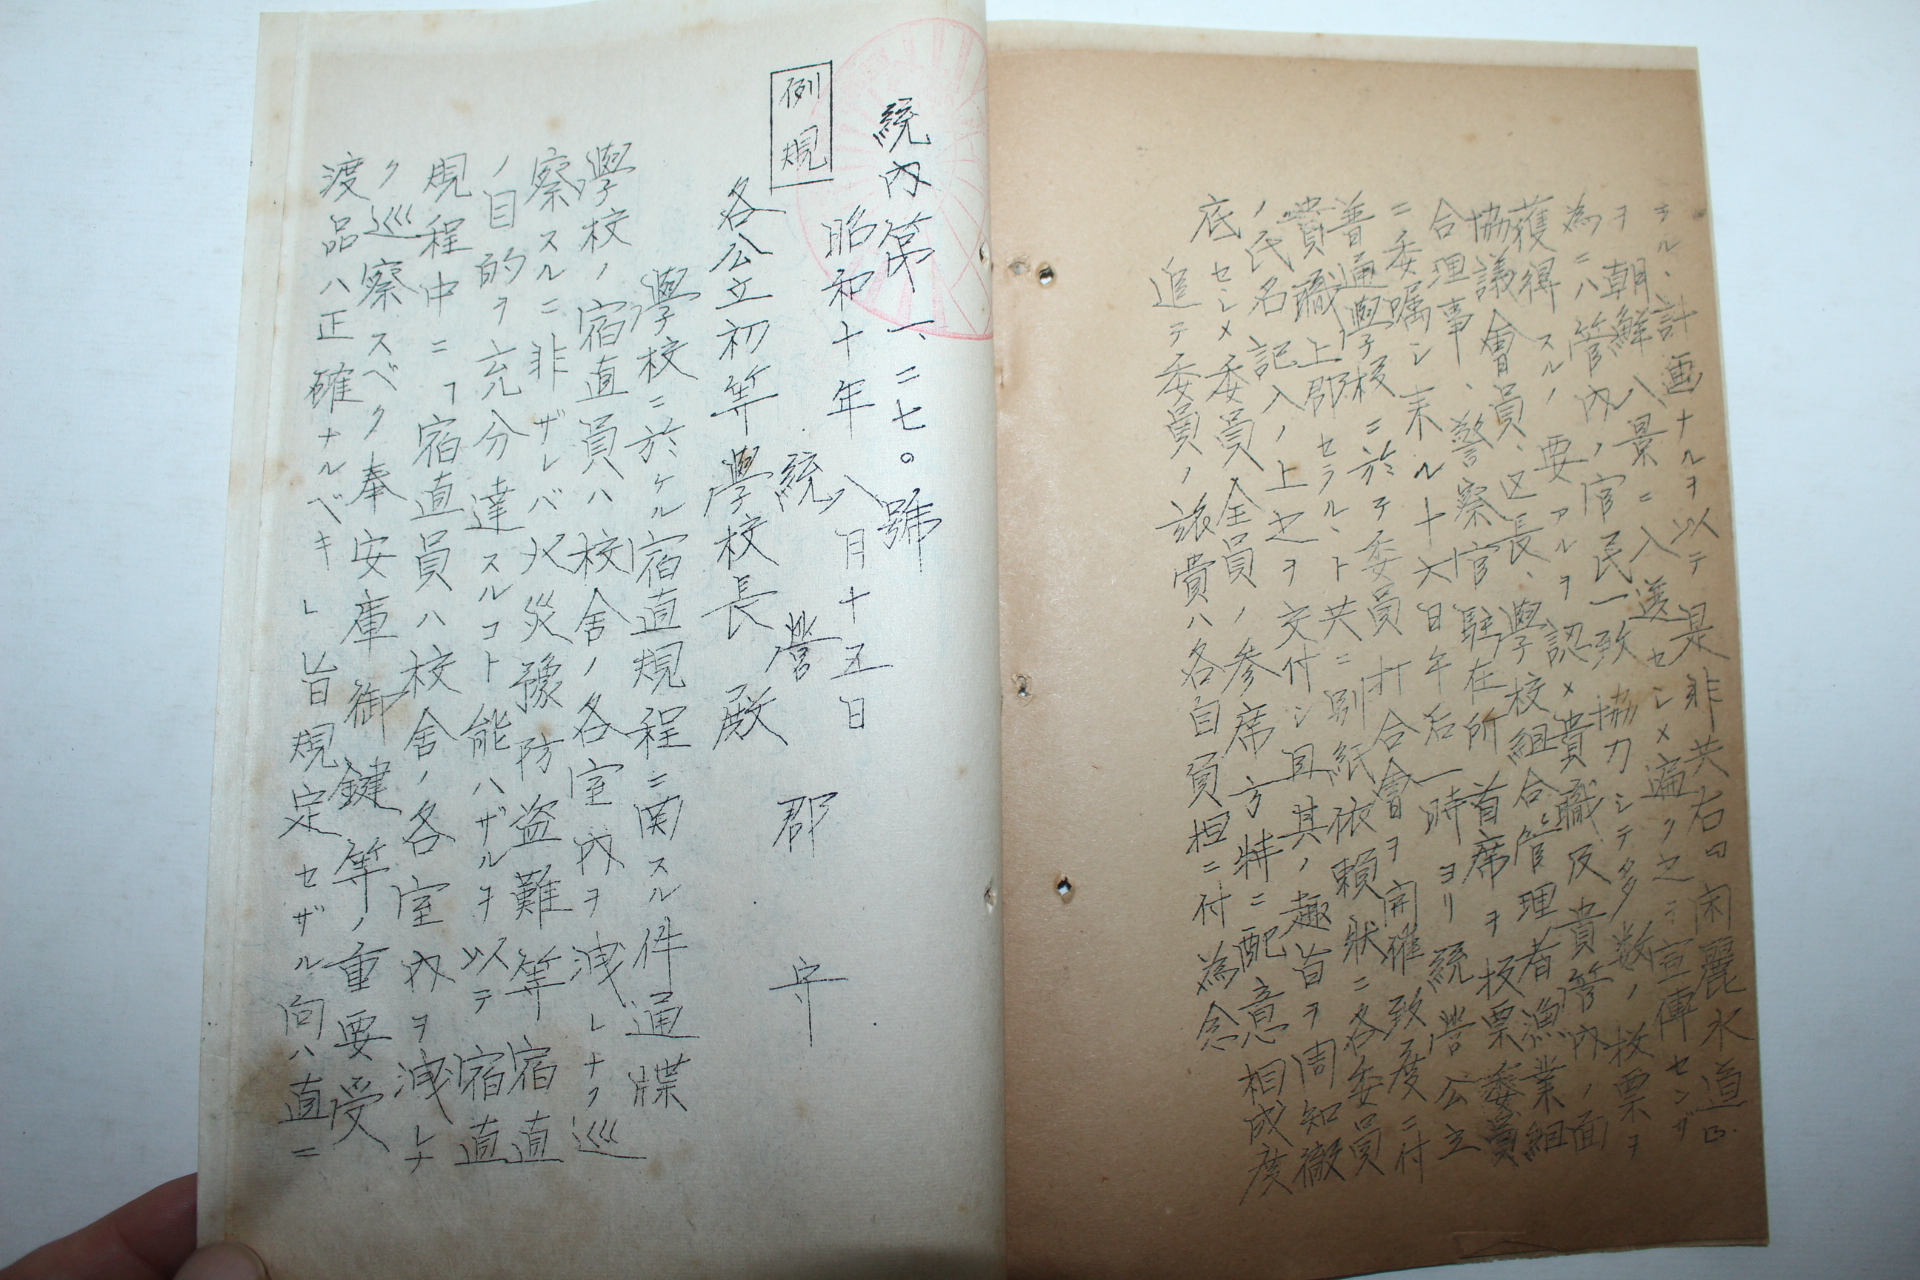 ラルヽ計画ナルヲ以テ是非共右ノ閑麗水道ヲ
ヲ朝鮮八景ニ入選セシメ遍ク之ヲ宣傳センガ
為ニハ管內ノ官民一致協力シテ多数ノ投票ヲ
獲得スルノ要アルヲ認メ貴職及貴管內ノ面
協議會員、区長、學校組合管理者漁業組
合理事、警察官駐在所首席ヲ投票委員
ニ委嘱シ来ル十六日午后一時ヨリ統營公立
普通學校ニ於テ委員打合會ヲ開催致度ニ付
貴職上郡セラルヽト共ニ別紙依賴狀ニ各委員
ノ氏名記入ノ上之ヲ交付シ且其ノ趣旨ヲ周知徹
底セシメ委員全員ノ參席方特ニ配意相成度
追テ委員ノ旅費ハ各自負担ニ付為念
統內第一、二七〇號
昭和十年八月十五日
例規
統營郡守
各公立初等學校長殿
學校ニ於ケル宿直規程ニ関スル件通牒
學校ノ宿直員ハ校舍ノ各室內ヲ洩レナク巡
察スルニ非ザレバ火災豫防盗難等宿直
ノ目的ヲ充分達スルコト能ハザルヲ以テ宿直
規程中ニ「宿直員ハ校舍ノ各室內ヲ洩レナ
ク巡察スベク奉安庫御鍵等ノ重要受
渡品ハ正確ナルベキ」旨規定セザル向ハ直ニ